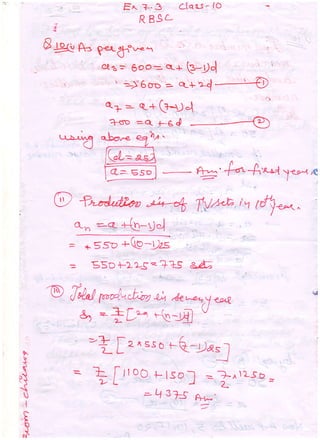 Ex 7.3 Class-10
RBSC
Q 12(i) As per given
a₃ = 600 = a + (3-1)d
⇒ 600 = a + 2d ——— ①
a₇ = a + (7-1)d
700 = a + 6d ——— ②
using above eqⁿs.
d = 25
a = 550 ——— Ans. for first year
(ii) Production in of TV sets in 10th year.
aₙ = a + (n-1)d
= 550 + (10-1)25
= 550 + 225 = 775 sets
(iii) Total production in seven year
Sₙ = 7/2 [2a + (n-1)d]
= 7/2 [2×550 + (7-1)25]
= 7/2 [1100 + 150] = 7/2 × 1250 =
= 4375 Ans